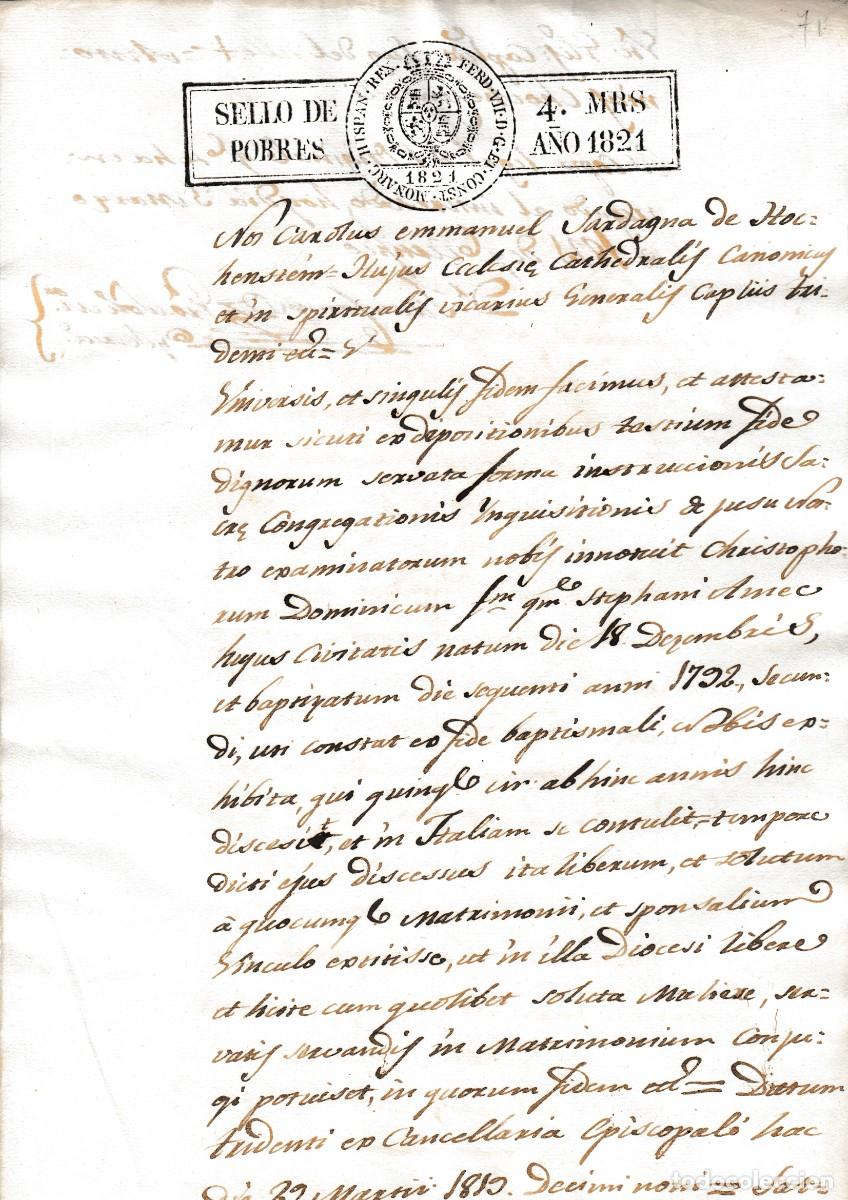 71
SELLO DE
POBRES
HISPAN · REX · FERD · VII · D · G · ET · CONST · MONARC ·
1821
4. MRS
AÑO 1821
Nos Carolus emmanuel Sardagna de Hoc=
henstem= Hujus Eclesię Cathedralis Canonicus
et in spiritualis vicarius Generalis Caplüs tri=
denti ect.ª=
Universis, et singulis fidem facimus, et attesta=
mur sicuti ex dipositionibus testium fide
dignorum servata forma instruccionis Sa=
crę Congregationis Ynquisitionis & jusu Nos=
tro examinatorum nobis innotuit Christopho=
rum Dominicum fm qm Stephani Amec
hujus Civitatis natum die 18 Dezembris,
et baptizatum die sequenti anni 1792, Secun=
di, uti constat ex fide baptismali, Nobis ex=
hibita, qui quinq cir abhinc annis hinc
discesit, et in Italiam se contulit,=tempore
dicti ejus discessus ita liberum, et solutum
à quocumq Matrimonii, et sponsalium
Vinculo extitisse, ut in illa Diocesi libere
et licite cum quolibet soluta Muliere, ser=
vatis servandis in Matrimonium Conju=
gi potuiset, in quorum fidem ect.ª = Datum
tridenti ex Cancellaria Episcopali hac
Die 29 Martii 1815. Decimi noni =
todocoleccion